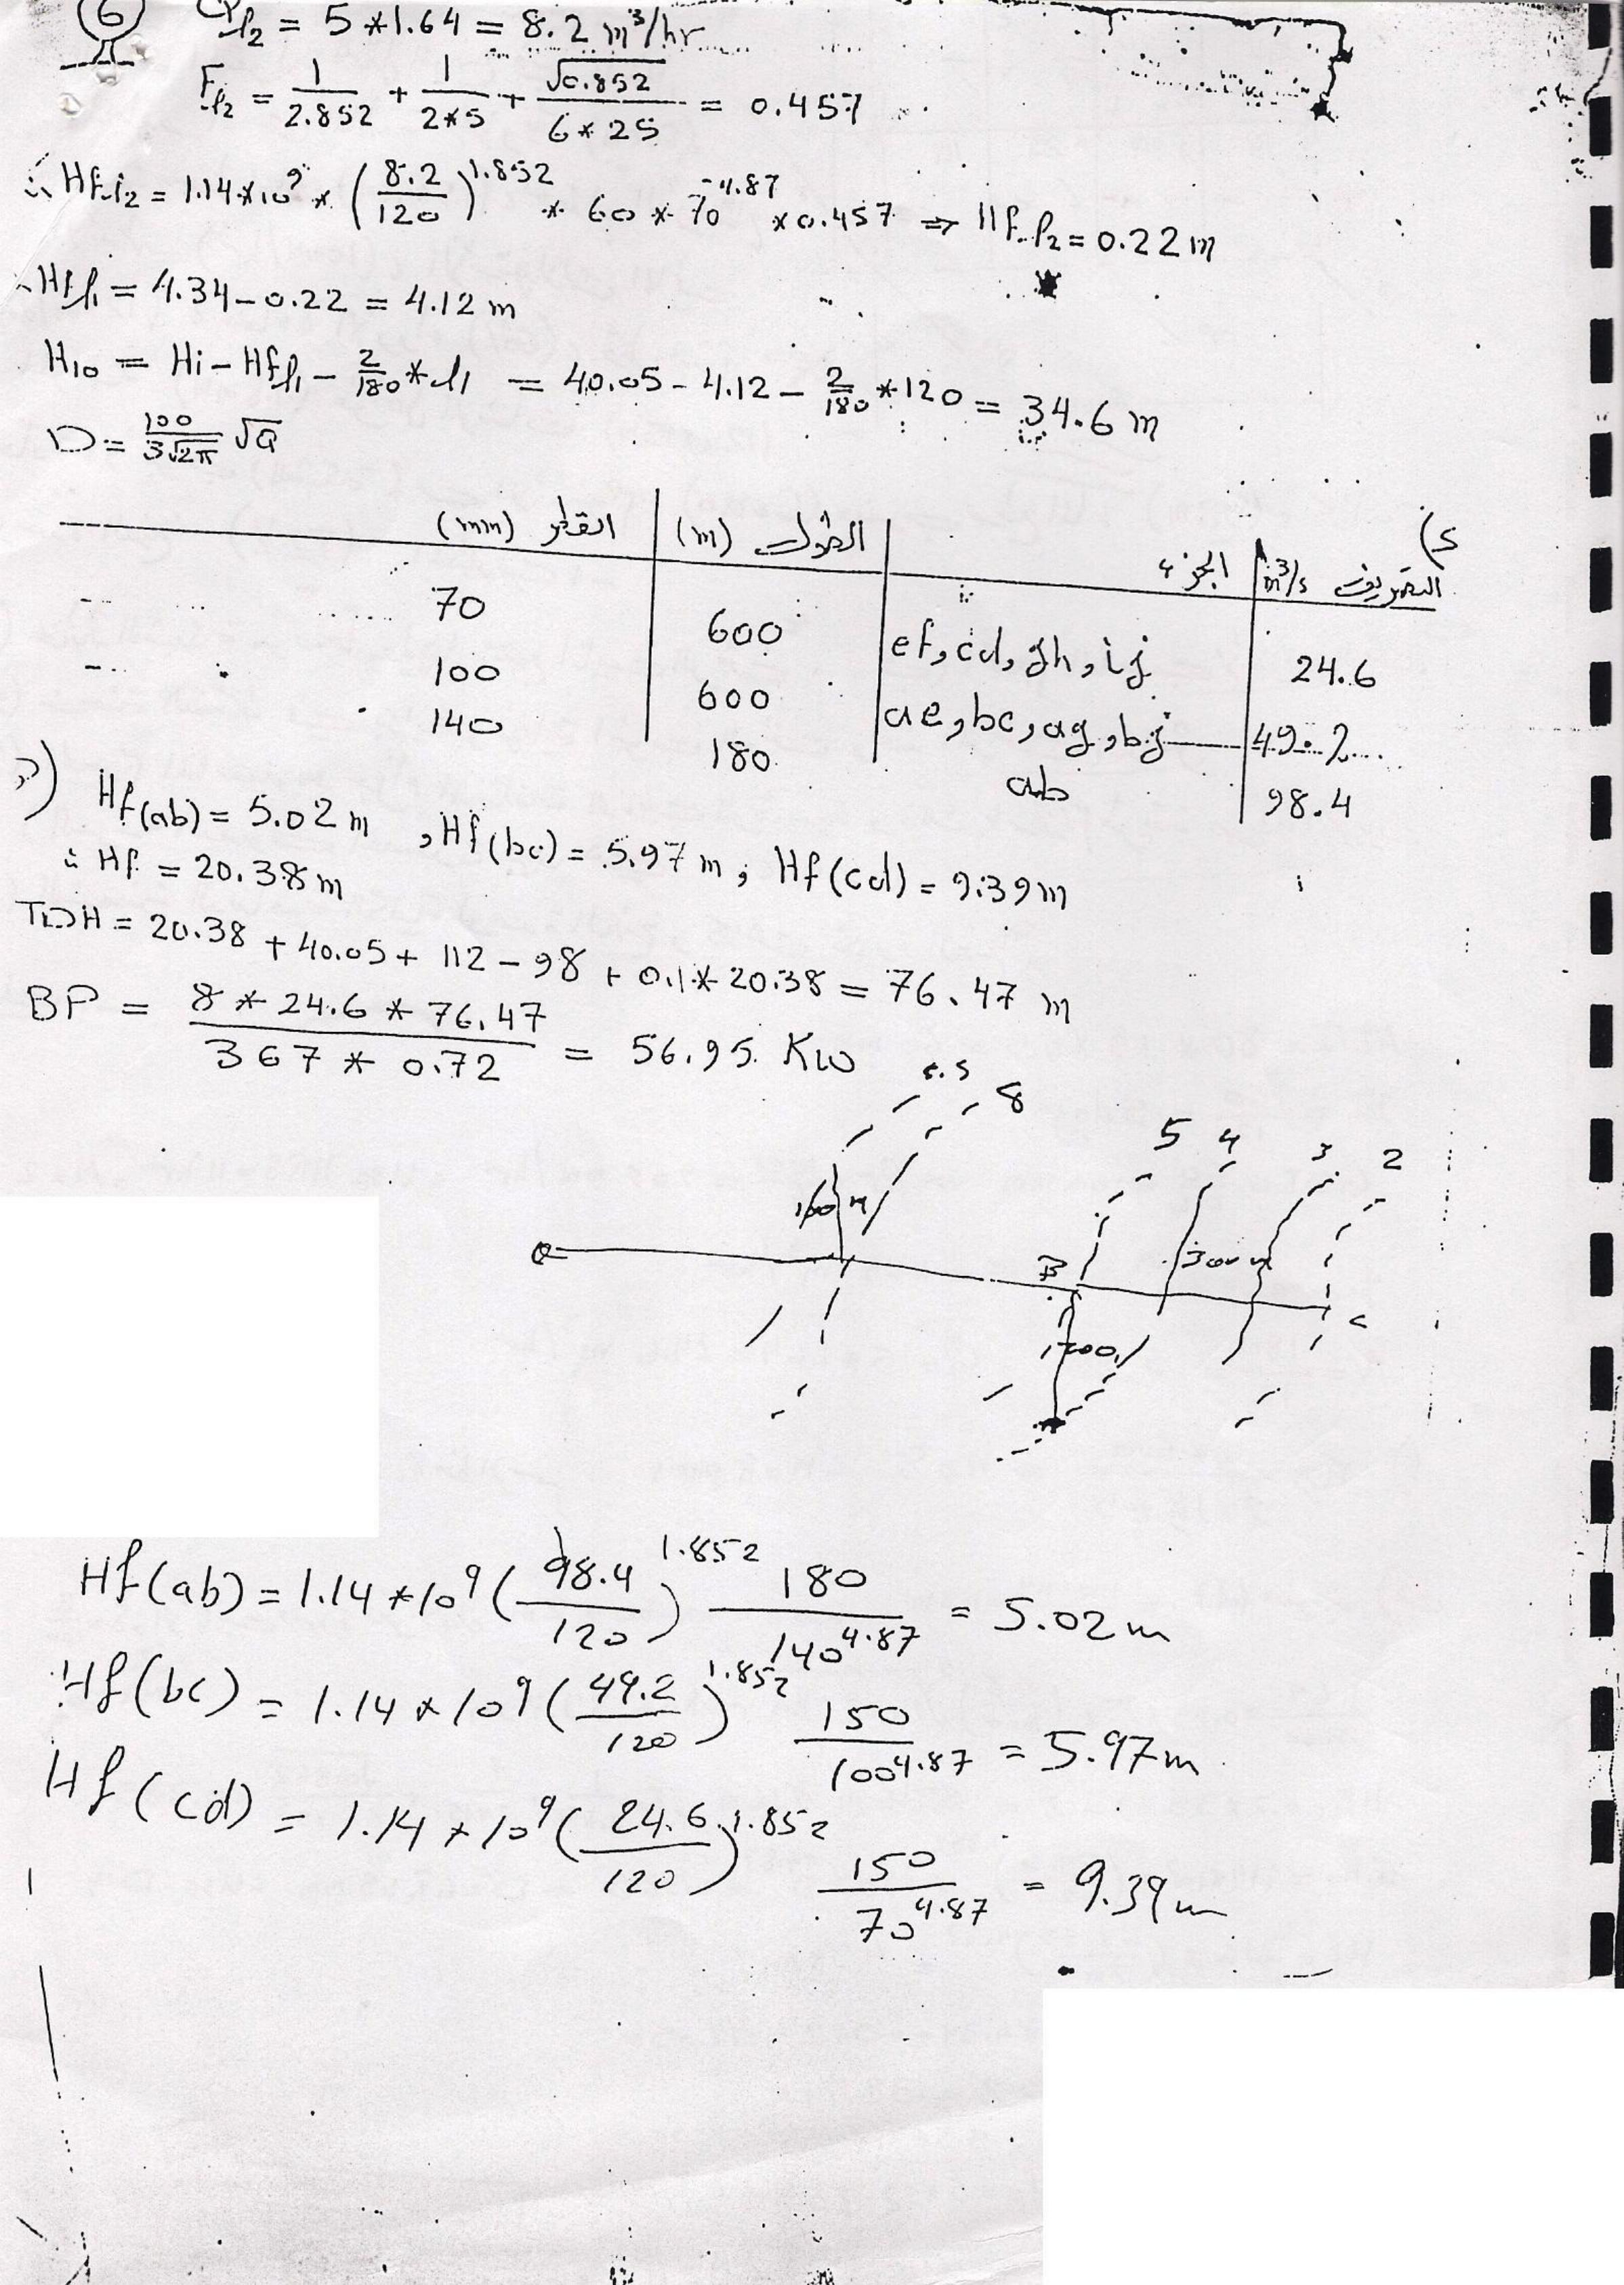 6
Q_l2 = 5 * 1.64 = 8.2 m³/hr
F_l2 = 1/2.852 + 1/2*5 + √0.852/6*25 = 0.457
∴ Hf-l2 = 1.14*10⁹ * (8.2/120)^1.852 * 60 * 70^-4.87 * 0.457 ⇒ Hf-l2 = 0.22 m
Hfl1 = 4.34 - 0.22 = 4.12 m
H10 = Hi - Hfl1 - 2/180 * l1 = 40.05 - 4.12 - 2/180 * 120 = 34.6 m
D = 100/3√2π √Q
التصريف m³/s | الجزء | الطول (m) | القطر (mm)
24.6 | ef, cd, gh, ij | 600 | 70
49.2 | ae, bc, ag, bj | 600 | 100
98.4 | ab | 180 | 140
Hf(ab) = 5.02 m , Hf(bc) = 5.97 m , Hf(cd) = 9.39 m
∴ Hf = 20.38 m
TDH = 20.38 + 40.05 + 112 - 98 + 0.1 * 20.38 = 76.47 m
BP = 8 * 24.6 * 76.47 / 367 * 0.72 = 56.95 Kw
8
5 4 3 2
B
300 m
Hf(ab) = 1.14 * 10⁹ (98.4/120)^1.852 180/140^4.87 = 5.02 m
Hf(bc) = 1.14 * 10⁹ (49.2/120)^1.852 150/100^4.87 = 5.97 m
Hf(cd) = 1.14 * 10⁹ (24.6/120)^1.852 150/70^4.87 = 9.39 m